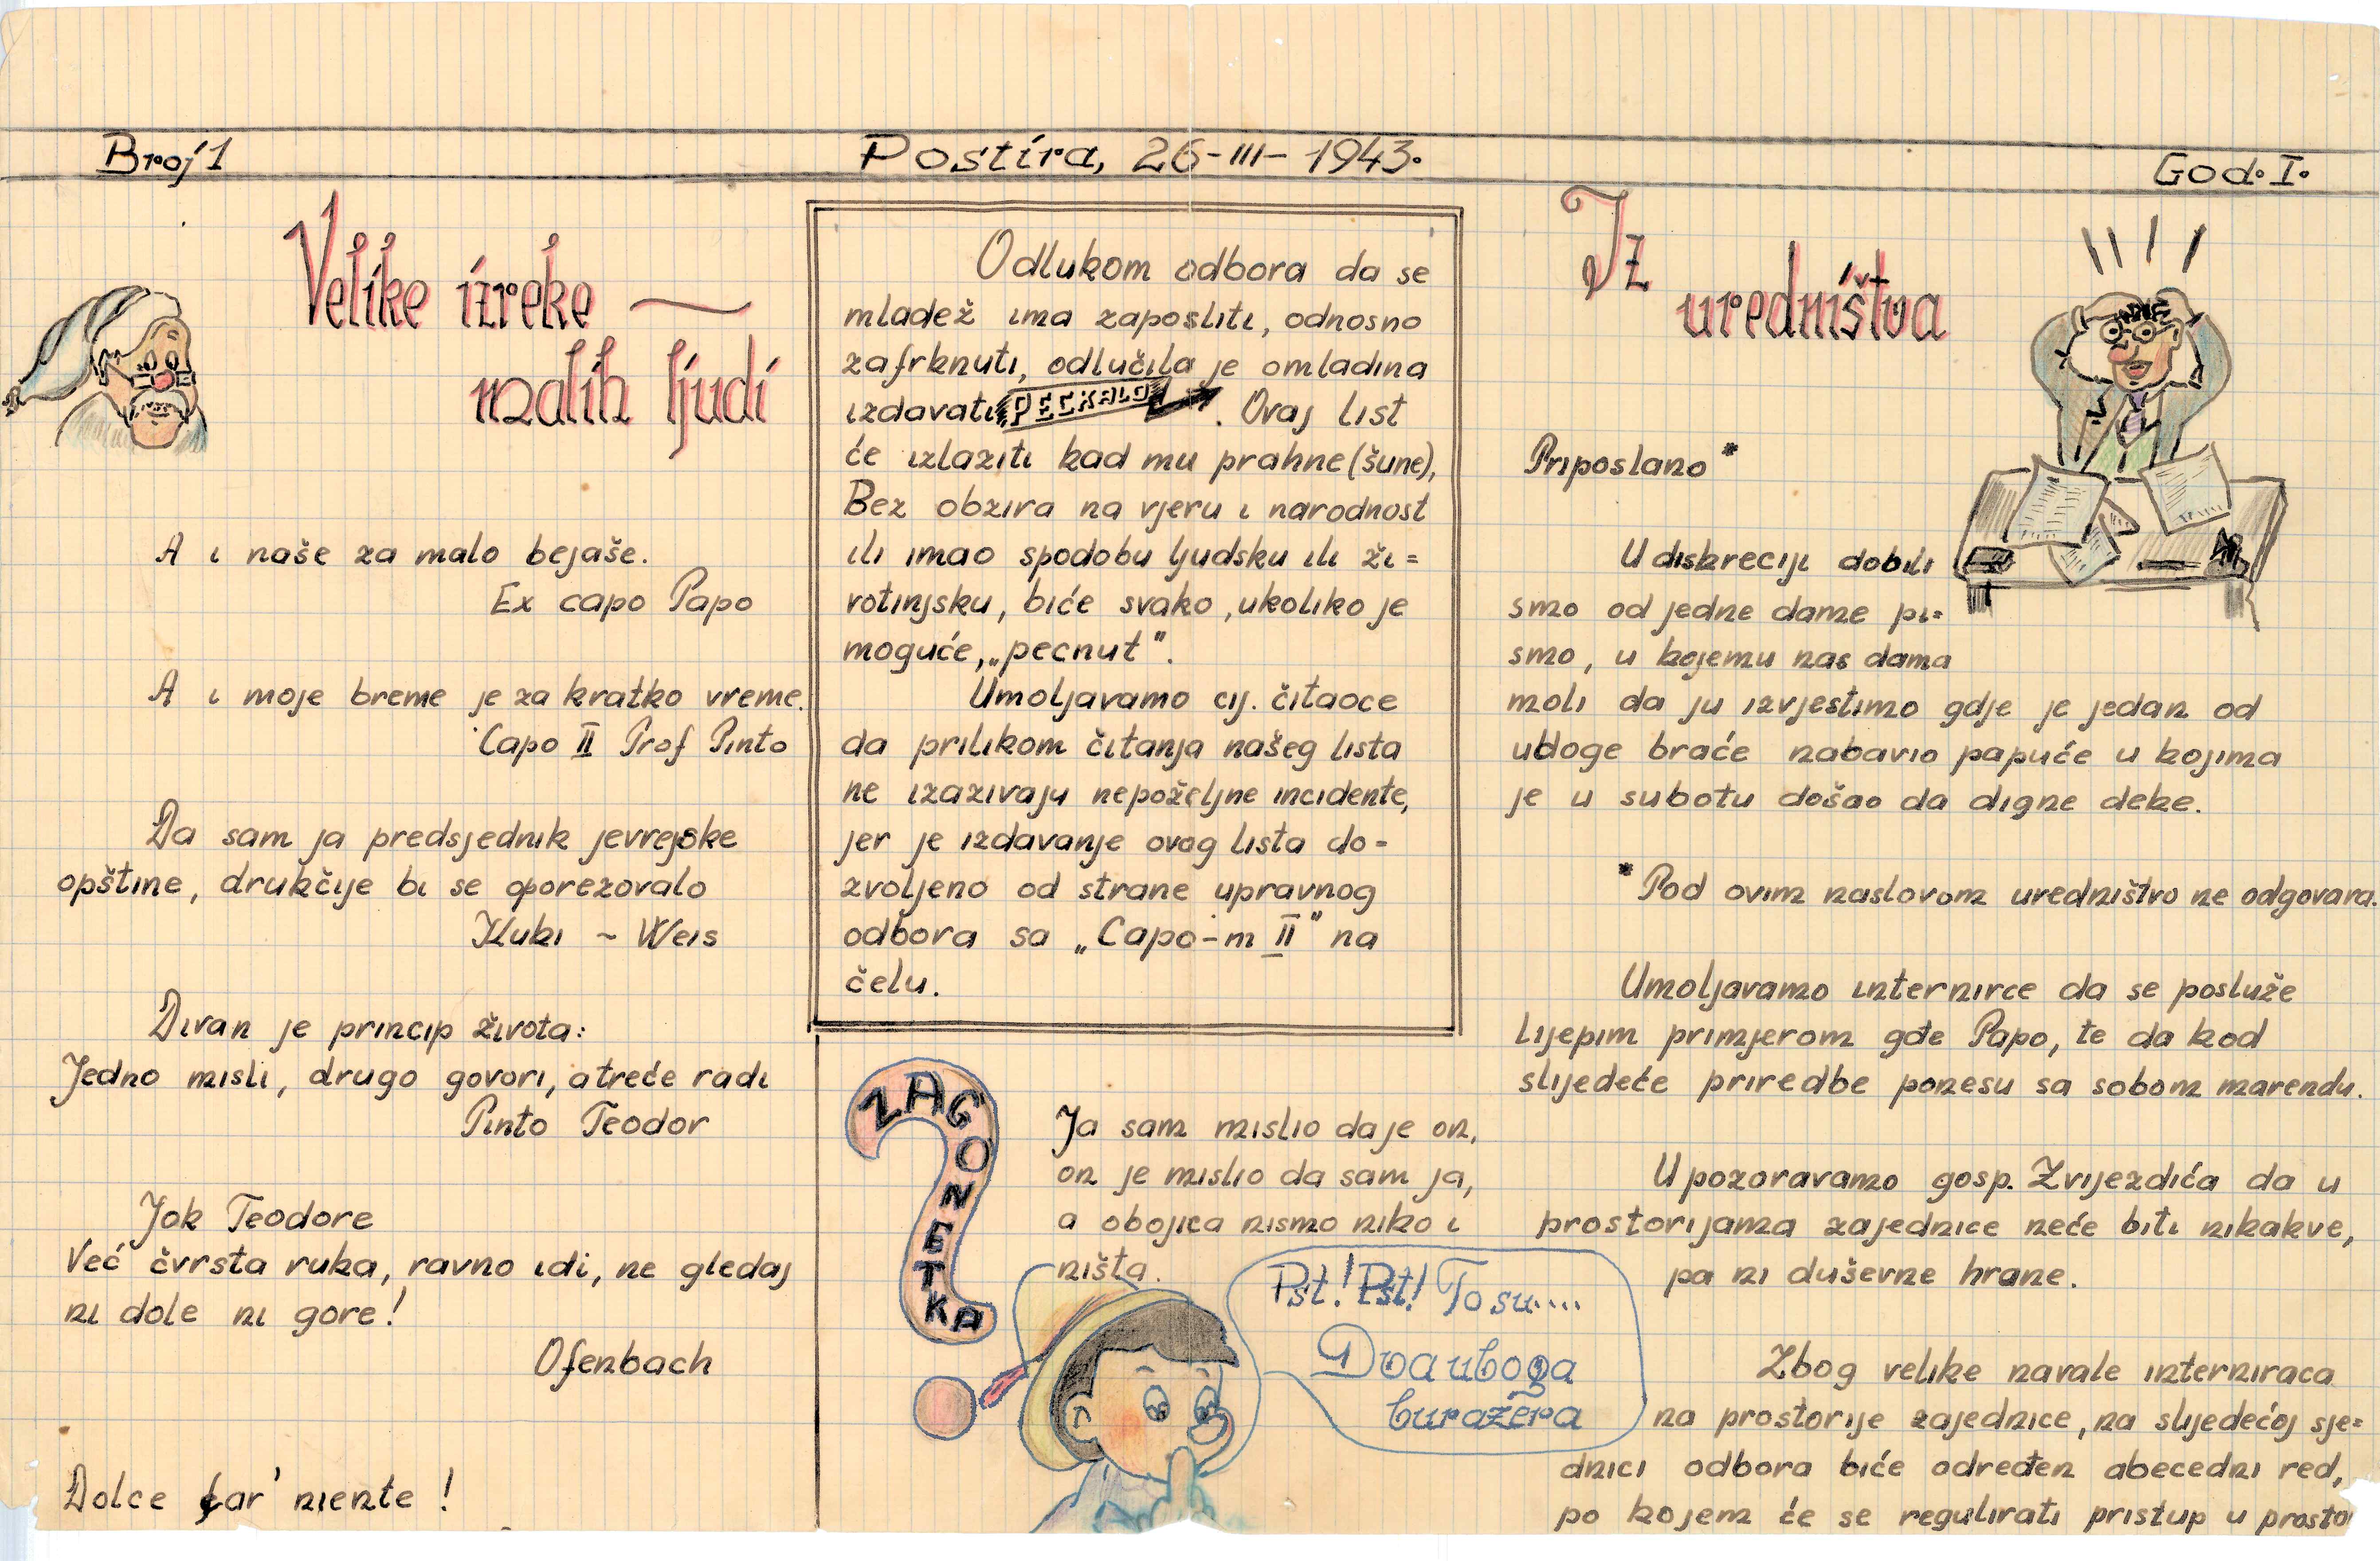 Broj 1
Postira, 26-III-1943.
God. I.
Velike izreke
malih ljudi
A i naše za malo bejaše.
Ex capo Papo
A i moje breme je za kratko vreme.
Capo II Prof Pinto
Da sam ja predsjednik jevrejske
opštine, drukčije bi se oporezovalo
Kuki ~ Weis
Divan je princip života:
Jedno misli, drugo govori, a treće radi
Pinto Teodor
Jok Teodore
Već čvrsta ruka, ravno idi, ne gledaj
ni dole ni gore!
Ofenbach
Dolce far' niente !
Odlukom odbora da se
mladež ima zaposliti, odnosno
zafrknuti, odlučila je omladina
izdavati PECKALO. Ovaj list
će izlaziti kad mu prahne (šune),
Bez obzira na vjeru i narodnost
ili imao spodobu ljudsku ili ži=
votinjsku, biće svako, ukoliko je
moguće, „pecnut".
Umoljavamo cij. čitaoce
da prilikom čitanja našeg lista
ne izazivaju nepoželjne incidente,
jer je izdavanje ovog lista do-
zvoljeno od strane upravnog
odbora sa „Capo-m II" na
čelu.
ZAGONETKA
Ja sam mislio da je on,
on je mislio da sam ja,
a obojica nismo niko i
ništa.
Pst! Pst! To su....
Dva uboga
buražera
Iz
uredništva
Priposlano *
U diskreciji dobili
smo od jedne dame pi=
smo, u kojemu nas dama
moli da ju izvjestimo gdje je jedan od
uboge braće nabavio papuće u kojima
je u subotu došao da digne deke.
* Pod ovim naslovom uredništvo ne odgovara.
Umoljavamo internirce da se posluže
lijepim primjerom gđe Papo, te da kod
slijedeće priredbe ponesu sa sobom marendu.
Upozoravamo gosp. Zvijezdića da u
prostorijama zajednice neće biti nikakve,
pa ni duševne hrane.
Zbog velike navale interniraca
na prostorije zajednice, na slijedećoj sje=
dnici odbora biće određen abecedni red,
po kojem će se regulirati pristup u prosto